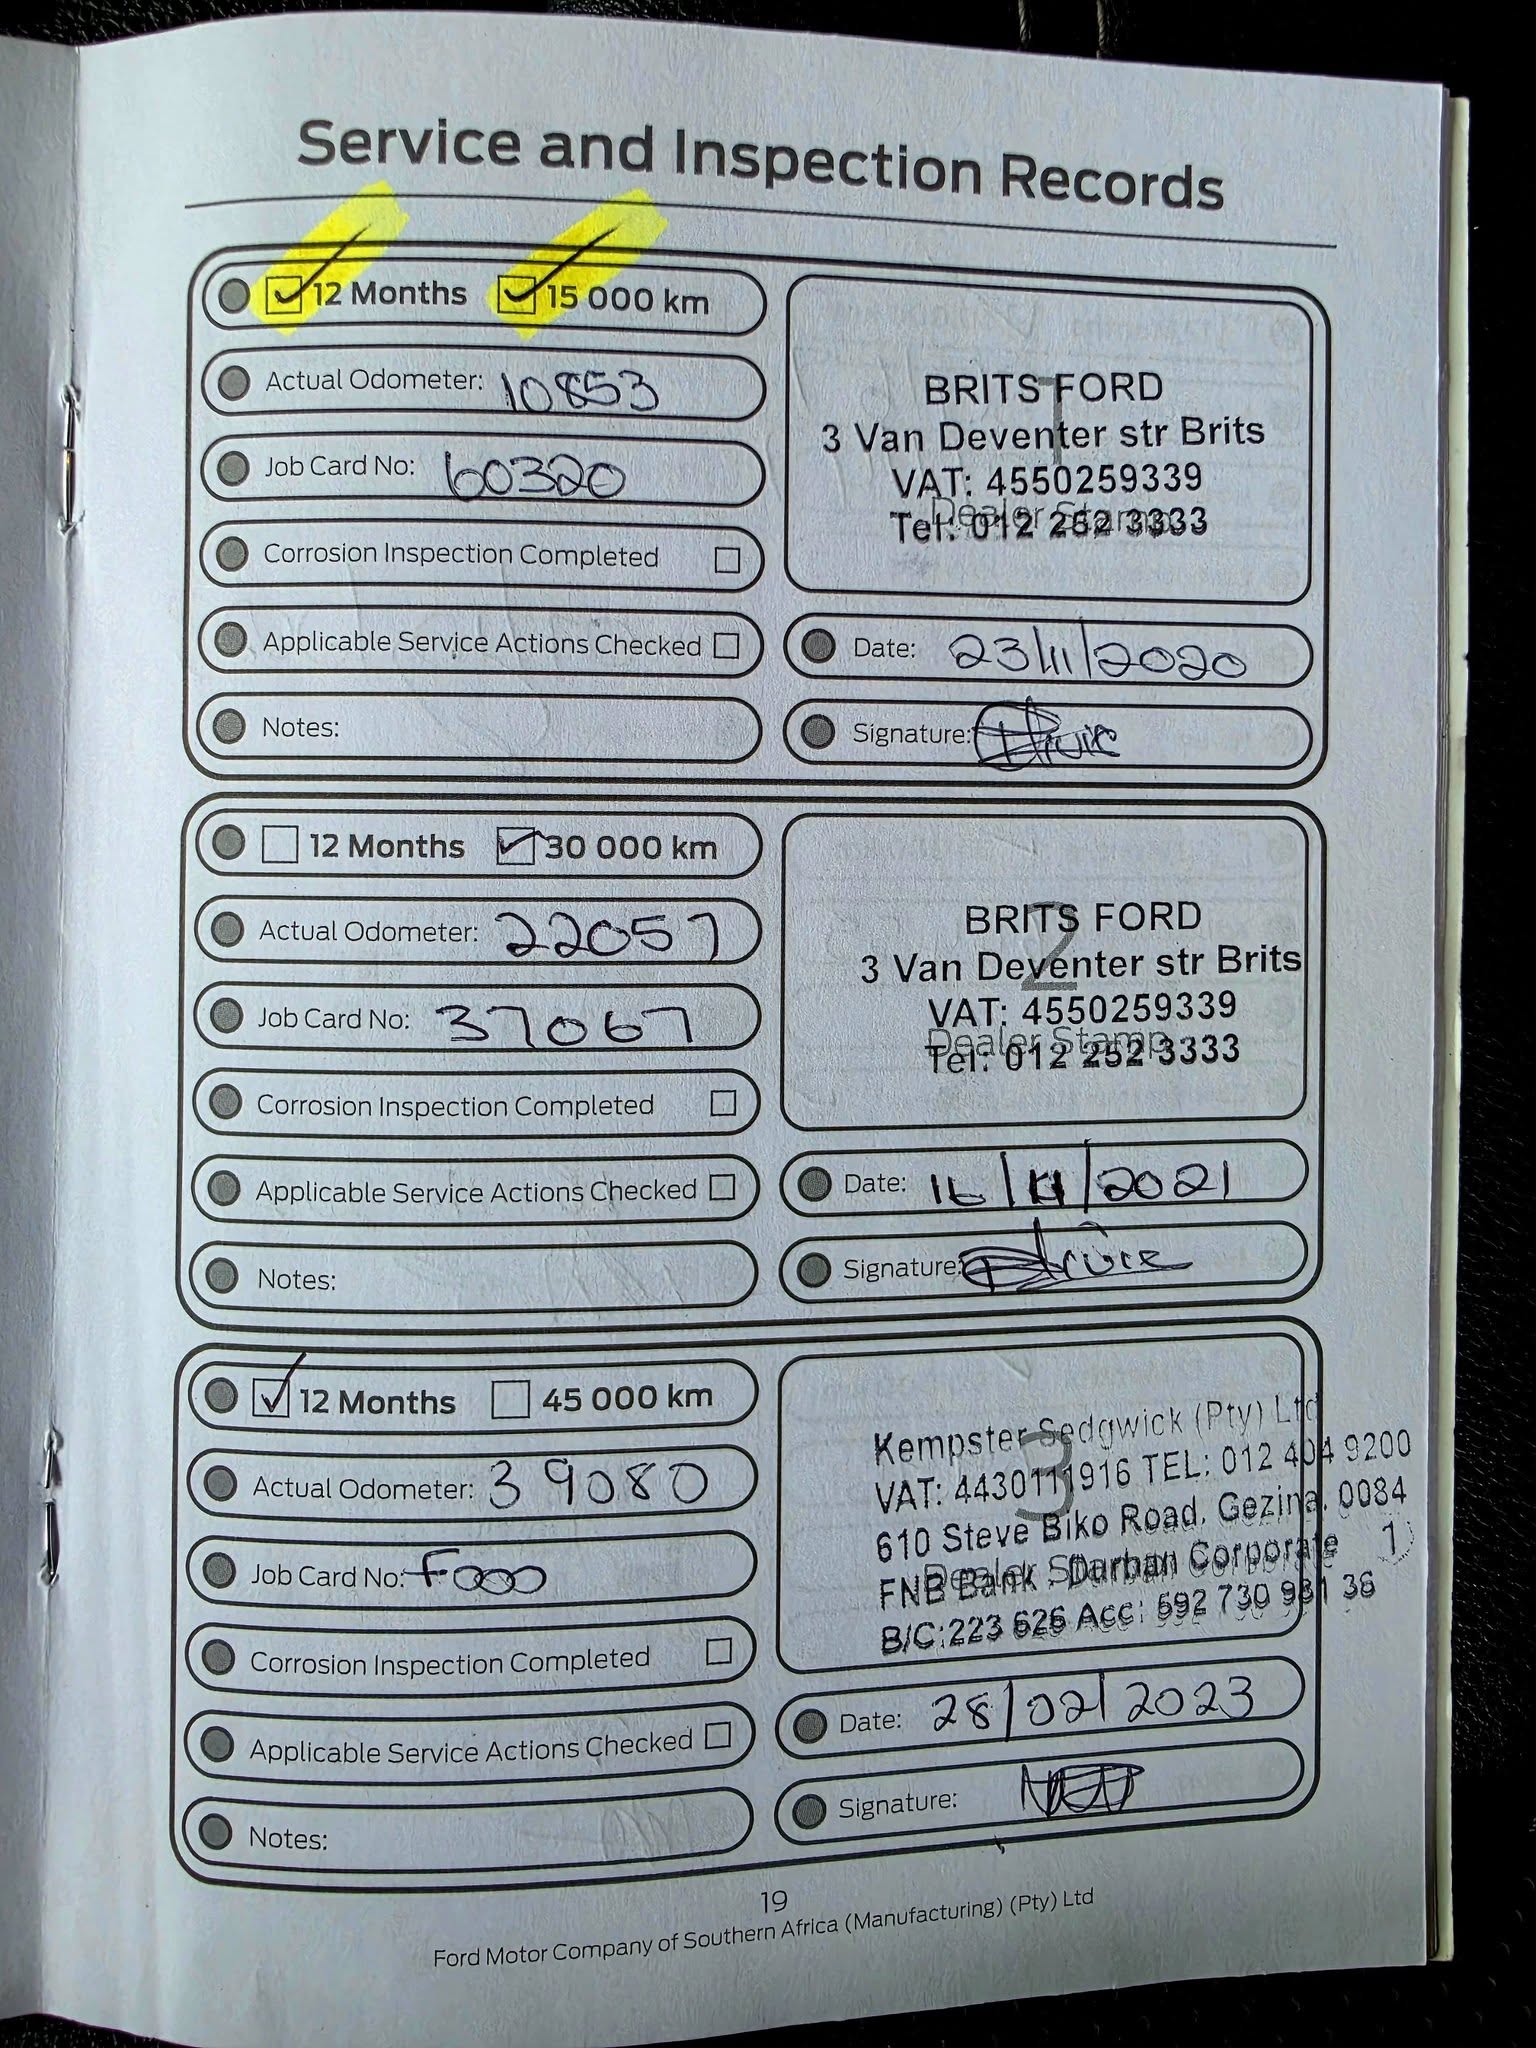 Service and Inspection Records
12 Months 15 000 km
Actual Odometer: 10853
Job Card No: 60320
Corrosion Inspection Completed
Applicable Service Actions Checked
Notes:
1
BRITS FORD
3 Van Deventer str Brits
VAT: 4550259339
Dealer Stamp
Tel: 012 252 3333
Date: 23/11/2020
Signature:
12 Months 30 000 km
Actual Odometer: 22057
Job Card No: 37067
Corrosion Inspection Completed
Applicable Service Actions Checked
Notes:
2
BRITS FORD
3 Van Deventer str Brits
VAT: 4550259339
Dealer Stamp
Tel: 012 252 3333
Date: 16/11/2021
Signature:
12 Months 45 000 km
Actual Odometer: 39080
Job Card No: F000
Corrosion Inspection Completed
Applicable Service Actions Checked
Notes:
3
Kempster Sedgwick (Pty) Ltd
VAT: 4430111916 TEL: 012 404 9200
610 Steve Biko Road, Gezina, 0084
Dealer Stamp
FNB Bank . Durban Corporate 1
B/C:223 626 Acc: 592 730 981 36
Date: 28/02/2023
Signature:
19
Ford Motor Company of Southern Africa (Manufacturing) (Pty) Ltd